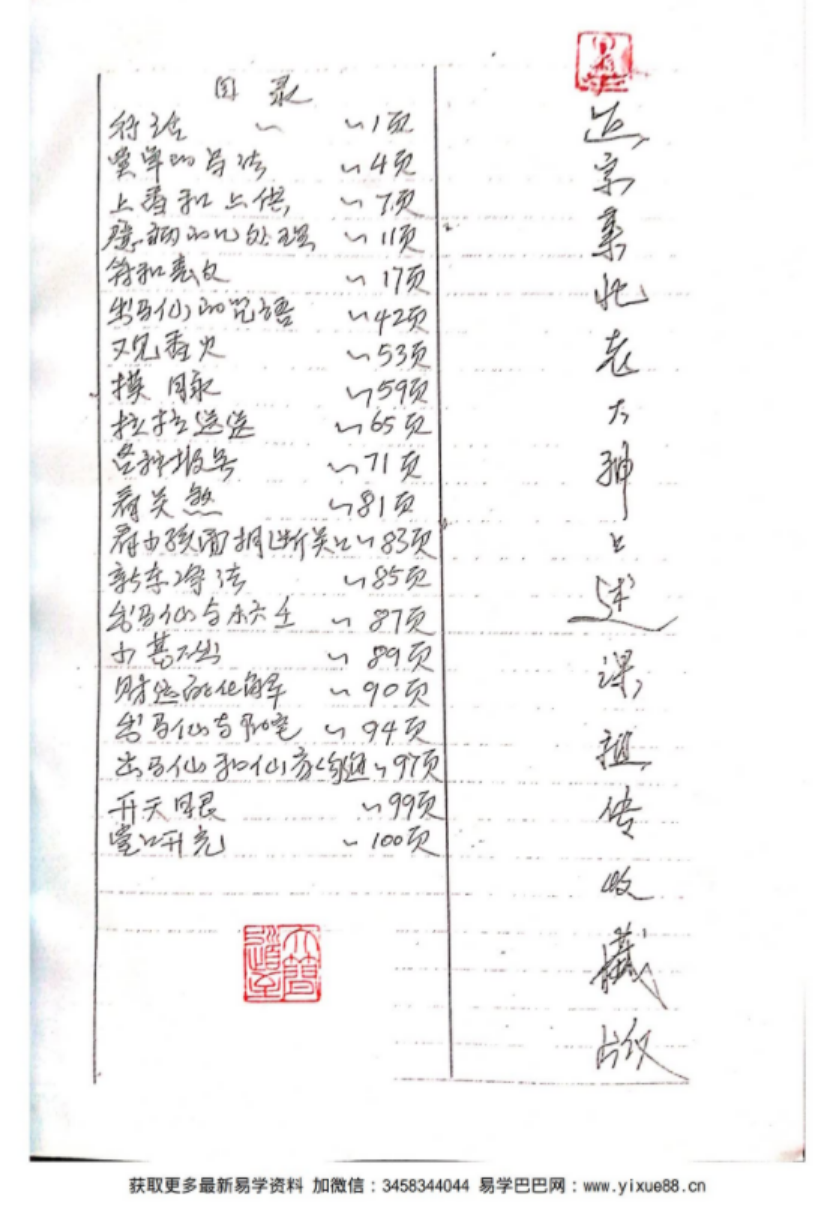 目录
行法 ~ ~1页
堂单的写法 ~4页
上香和上供 ~7页
虚病的化处理 ~11页
符和表文 ~17页
出马仙的咒语 ~42页
又见香火 ~53页
摸脉 ~59页
拉拉送送 ~65页
各种报号 ~71页
看关煞 ~81页
看小孩面相断关口~83页
新车净法 ~85页
出马仙与小六壬 ~87页
~89页
财运的化解 ~90页
出马仙与阴宅 ~94页
出马仙和仙家沟通~97页
开天眼 ~99页
堂口开光 ~100页
大道至简
东北老大神口述
课
传
收藏版
获取更多最新易学资料 加微信：3458344044 易学巴巴网：www.yixue88.cn